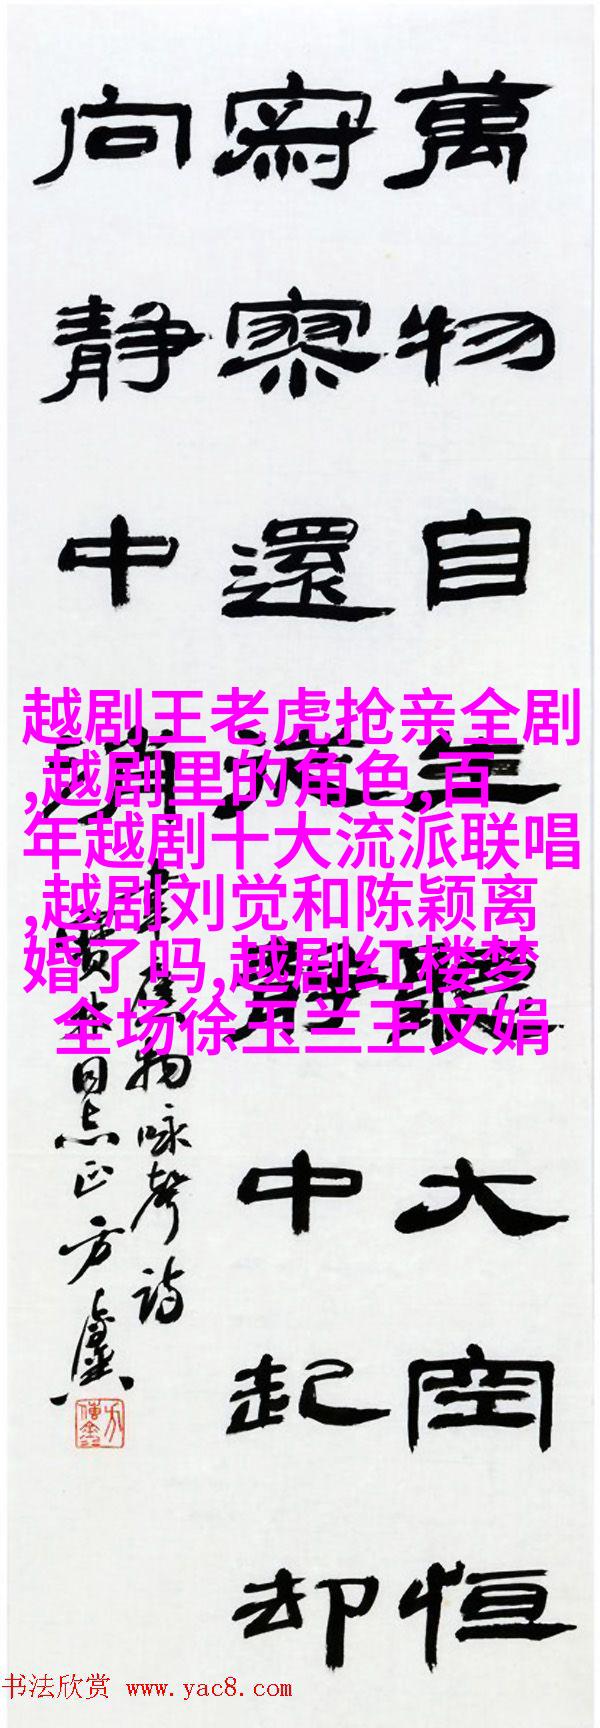 萬物自生聽大空恒
寂寥還從靜中起却
向靜中消
韋應物咏聲詩
同志正方
越剧王老虎抢亲全剧
,越剧里的角色,百
年越剧十大流派联唱
,越剧刘觉和陈颖离
婚了吗,越剧红楼梦
全场徐玉兰王文娟
书法欣赏 www.yac8.com